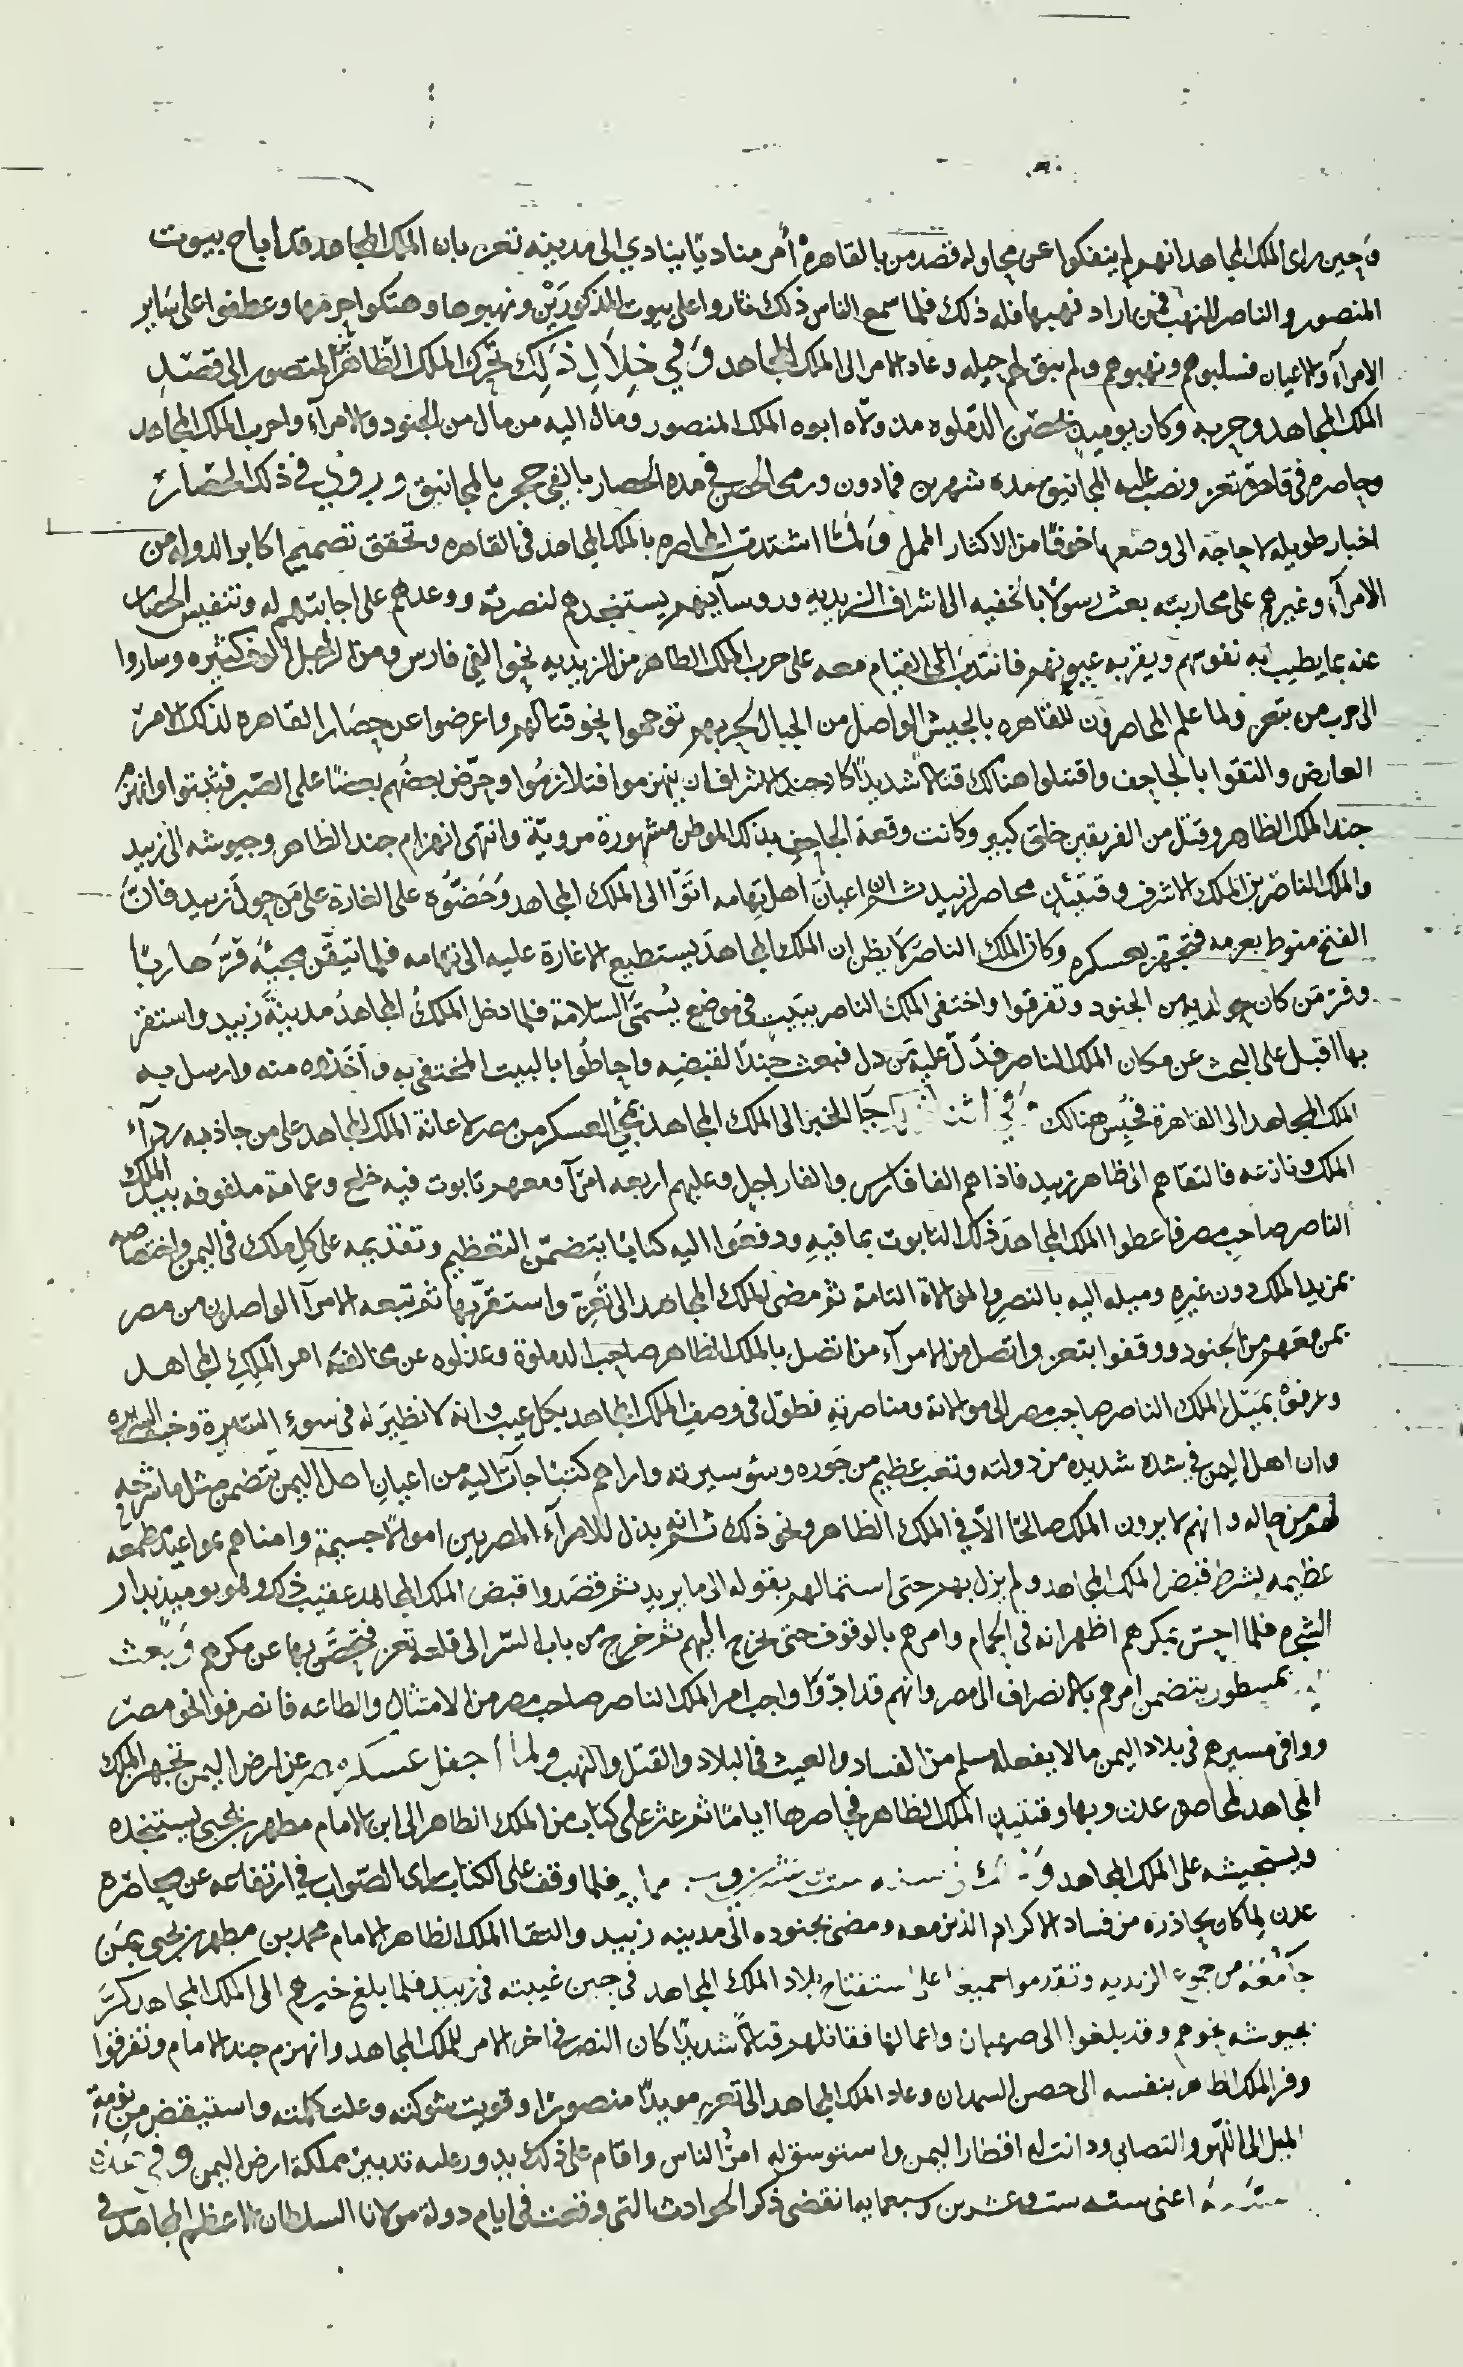 وحين راى الملك المجاهد انهم لم ينفكوا عن محاوله قصد من بالقاهرة أمر مناديًا ينادي الى مدينه تعز بان الملك المجاهد قد اباح بيوت
المنصور والناصر للنهب فمن اراد نهبها فله ذلك فلما سمع الناس ذلك غاروا على بيوت المذكورَيْن ونهبوها وهتكوا حرمها وعطفوا على سَاير
الامرآء والاعيان فسلبوهم ونهبوهم ولم يبق لهم حيله وعاد الامر الى الملك المجاهد وَفي خِلَالِ ذَلِكَ تحرك الملك الظاهر بن المنصور الى قصد
الملك المجاهد وحربه وكان يوميذٍ بحصن الدملوه مذ ولاه ابوه الملك المنصور ومال اليه من مال من الجنود والامرآء واحرب الملك المجاهد
وحاصره في قاهرة تعز ونصب عليه المجانيق مده شهرين فمادون ورمى الحصن في مده الحصار بالفي حجر بالمجانيق ويروى في ذلك الحصار
اخبار طويله لا حاجة الى وضعها خوفًا من الاكثار الممل وَلمَّا اشتدت المحاصره بالملك المجاهد في القاهره وتحقق تصميم اكابر الدوله من
الامرآء وغيرهم على محاربته بعث رسولا بالخفيه الى اشراف الزيديه وروسآيهم يستنجدهم لنصرته ووعدهم على اجابتهم له وتنفيس الحصار
عنه بما يطيب به نفوسهم ويقر به عيونهم فانتدب الى القيام معه على حرب الملك الظاهر من الزيديه نحو الفي فارس ومن الرجل الوف كثيره وساروا
الى حرب من بتعز ولما علم المحاصرون للقاهره بالجيش الواصل من الجبال لحربهم توجهوا نحو قتالهم واعرضوا عن حِصَار القاهره لذلك الامر
العارض والتقوا بالجاحف واقتتلوا هنالك قتالا شديدًا كاد جند الاشراف ان ينهزموا فتلازموا وحرّض بعضُهم بعضًا على الصبر فثبتوا وانهزم
جند الملك الظاهر وقتل من الفريقين خلق كبير وكانت وقعة الجاحف بذلك الموطن مشهورة مرويّة وانتهى انهزام جند الظاهر وجيوشه الى زبيد
والملك الناصر بن الملك الاشرف وقتيئذٍ محاصر لزبيد ثم ان اعيان اهل تهامه اتَوّا الى الملك المجاهد وَحَضُّوه على الغارة على مَن حولَ زبيد فانّ
الفتح منوط بعزمه فتجهز بعسكره وكان الملك الناصر لا يظن ان الملك المجاهدَ يستطيع الاغارة عليه الى تهامه فلما تيقّن مجيَّه فرَّ هاربًا
وفرّ مَن كان حواليه من الجنود وتفرقوا واختفى الملك الناصر ببيت في موضع يُسمّى السلامة فلما دخل الملكُ المجاهدُ مدينةَ زبيد واستقر
بها اقبل على البحث عن مكان الملك الناصر فدّل عليه مَن دل فبعث جندًا لقبضِه واحاطوا بالبيت المختفى به وأخذوه منه وارسل به
الملك المجاهد الى القاهرة فحُبِس هنالك وَفي اثناء جَا الخبر الى الملك المجاهد بمجي العسكر من مصر لاعانة الملك المجاهد على من جاذبه ردآء
الملك ونازعه فالتقاهم الى ظاهر زبيد فاذا هم الفا فارس والفا راجل وعليهم اربعه امرآ ومعهم تابوت فيه خلع وعمامة ملفوفه بيد الملك
الناصر صاحب مصر فاعطوا الملك المجاهدَ ذلك التابوت بما فيهِ ودفعَوا اليه كتابًا يتضمّن التعظيم وتقديمه على كل ملك في اليمن واختصاصه
بمزيد الملك دون غيرهِ وميله اليه بالنصر والموالاة التامة ثم مضى الملك المجاهد الى تَعز واستقر بها ثم تبعه الامرآ الواصلون من مصر
بمن معهم من الجنود ووقفوا بتعز واتصل من الامرآء من اتصل بالملك الظاهر صاحب الدملوة وعذلوه عن مخالفة امر الملك المجاهد
وعرفوْه بمَيل الملك الناصر صاحب مصر الى موالاته ومناصرته فطوّل في وصف الملك المجاهد بكل عيب وانه لا نظيَر له في سوءِ السيرة وخبث السريره
وان اهل اليمن في شده شديده من دولته وتعب عظيم من جَوره وسئو سيرته واراهم كتبًا جآت اليه من اعيان اهل اليمن تتضمن مثل ما شرحه
لهم من حاله وانهم لا يرون الملك صالحًا الّا في الملك الظاهر ونحو ذلك ثم انه بذل للامرآء المصريين اموالًا جسيمة وامناهم بمواعيد مطمعه
عظيمه بشرط قبض الملك المجاهد ولم يزل بهم حتى استمالهم بقوله الى ما يريد ثم قصَدوا قبض الملك المجاهد عقيب ذلك وهو يوميذ بدار
الشجره فلما احسّ بمكرهم اظهر انه في الحمام وامرهم بالوقوف حتى يخرج اليهم ثم خرج من باب السّر الى قلعه تعز فتحصَّن بها عن مكرهم وَبعث
بمسطور يتضمن امرهم بالانصراف الى مصر وانهم قد ادّوّا واجب امر الملك الناصر صاحب مصر من الامتثال والطاعه فانصرفوا نحو مصر
ووافى مسيرهم في بلاد اليمن ما لا يفعله مسلم من الفساد والعيث في البلاد والقتل والنهب ولما أجفل عسكر مصر عن ارض اليمن تجهز الملك
المجاهد لمحاصرة عدن وبها وقتيذٍ الملك الظاهر فحاصرها ايامًا ثم عثر على كتاب من الملك الظاهر الى ابن الامام مطهر بن يحيى يستنجده
ويستجيشه على الملك المجاهد وَذلك في سنه ست وعشرين وسبعمايه فلما وقف على الكتاب راى الصّواب في ارتفاعه عن محاصَرة
عدن لِما كان يحاذره من فساد الاكراد الذين معه ومضى بجنوده الى مدينه زبيد والتقا الملك الظاهر الامام محمد بن مطهر بن يحيى بمَن
جآمَعَه من جموع الزيديه وتقدموا جميعا على استفتاح بلاد الملك المجاهد في حين غيبته في زبيد فلما بلغ خبرهم الى الملك المجاهد كرَّ
بجيوشه نحوهم وقد بلغوا الى صهبان واعمالها فقاتلهم قتالًا شديدًا كان النصر في اخر الامر للملك المجاهد وانهزم جند الامام وتفرقوا
وفر الملك الظاهر بنفسه الى حصن السمدان وعاد الملك المجاهد الى تعز مويدًا منصورًا وقويت شوكته وعلت كلمته واستيقض من نومةِ
الميل الى اللهو والتصابي ودانت له اقطار اليمن واستوسق له امرُ الناس واقام على ذلك يدور عليه تدبير مملكة ارض اليمن وفي هذه
السَّنه اعني سنه ست وعشرين وسبعمايه انقضى ذكر الحوادث التي وقعت في ايام دولة مولانا السلطان الاعظم المجاهد في